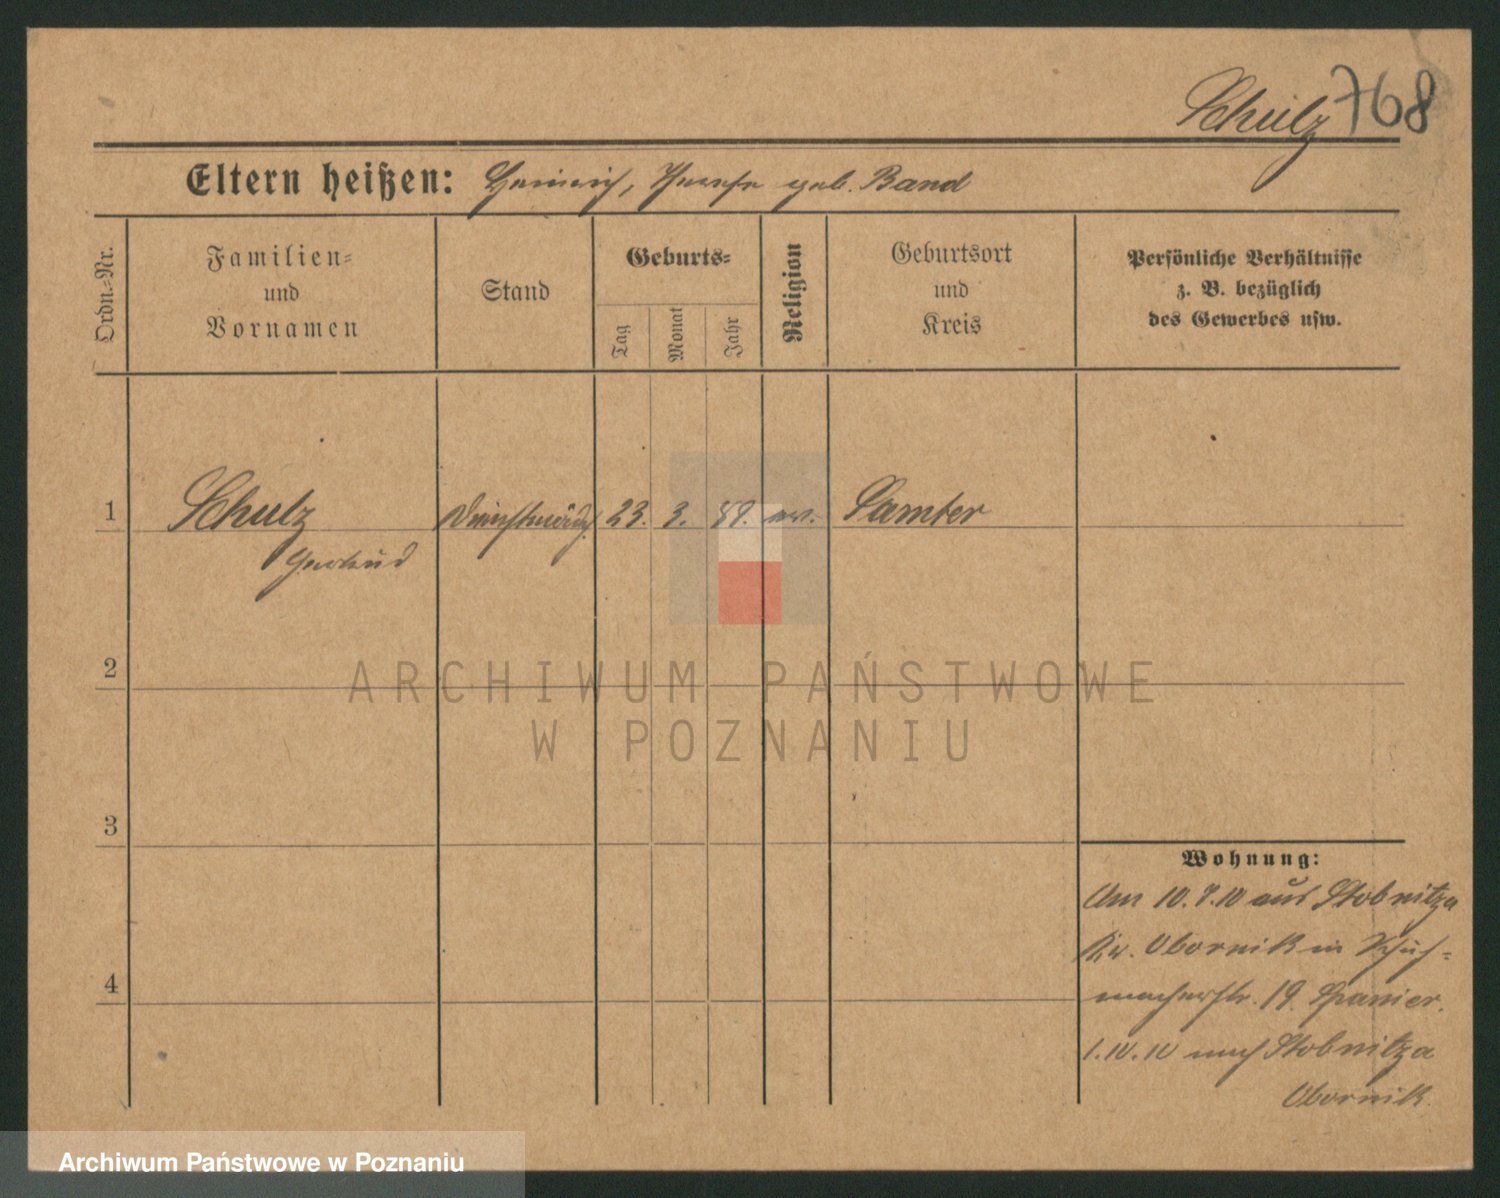 Schulz 768
Eltern heißen: Heinrich, Therese geb. Band
Ordn.-Nr.
Familien-
und
Vornamen
Stand
Geburts-
Tag
Monat
Jahr
Religion
Geburtsort
und
Kreis
Persönliche Verhältnisse
z. B. bezüglich
des Gewerbes usw.
1 Schulz Dienstmädch. 23. 3. 89. ev. Samter
Gertrud
2
ARCHIWUM PAŃSTWOWE
W POZNANIU
3
Wohnung:
Am 10.7.10 aus Stobnitza
Kr. Obornik in Schuh-
4
macherstr. 19. Spanier.
1.10.10 nach Stobnitza
Obornik.
Archiwum Państwowe w Poznaniu